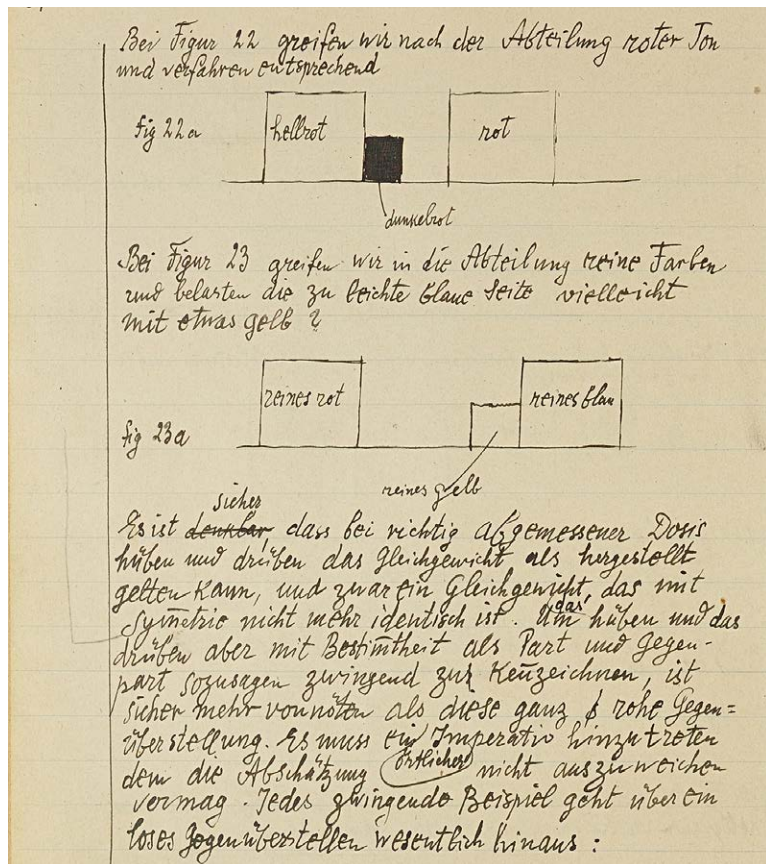 Bei Figur 22 greifen wir nach der Abteilung roter Ton
und verfahren entsprechend
fig 22a
hellrot
rot
dunkelrot
Bei Figur 23 greifen wir in die Abteilung reine Farben
und belasten die zu leichte blaue Seite vielleicht
mit etwas gelb ?
reines rot
reines blau
fig 23a
reines gelb
sicher
Es ist denkbar, dass bei richtig abgemessener Dosis
hüben und drüben das Gleichgewicht als hergestellt
gelten kann, und zwar ein Gleichgewicht, das mit
Sym̅etrie nicht mehr identisch ist. Um das hüben und das
drüben aber mit Bestim̅theit als Part und Gegen-
part sozusagen zwingend zur Ken̅zeichnen, ist
sicher mehr vonnöten als diese ganz rohe Gegen=
überstellung. Es muss ein Imperativ hinzutreten
dem die Abschätzung örtlicher nicht auszuweichen
vermag. Jedes zwingende Beispiel geht über ein
loses Gegenüberstellen wesentlich hinaus :